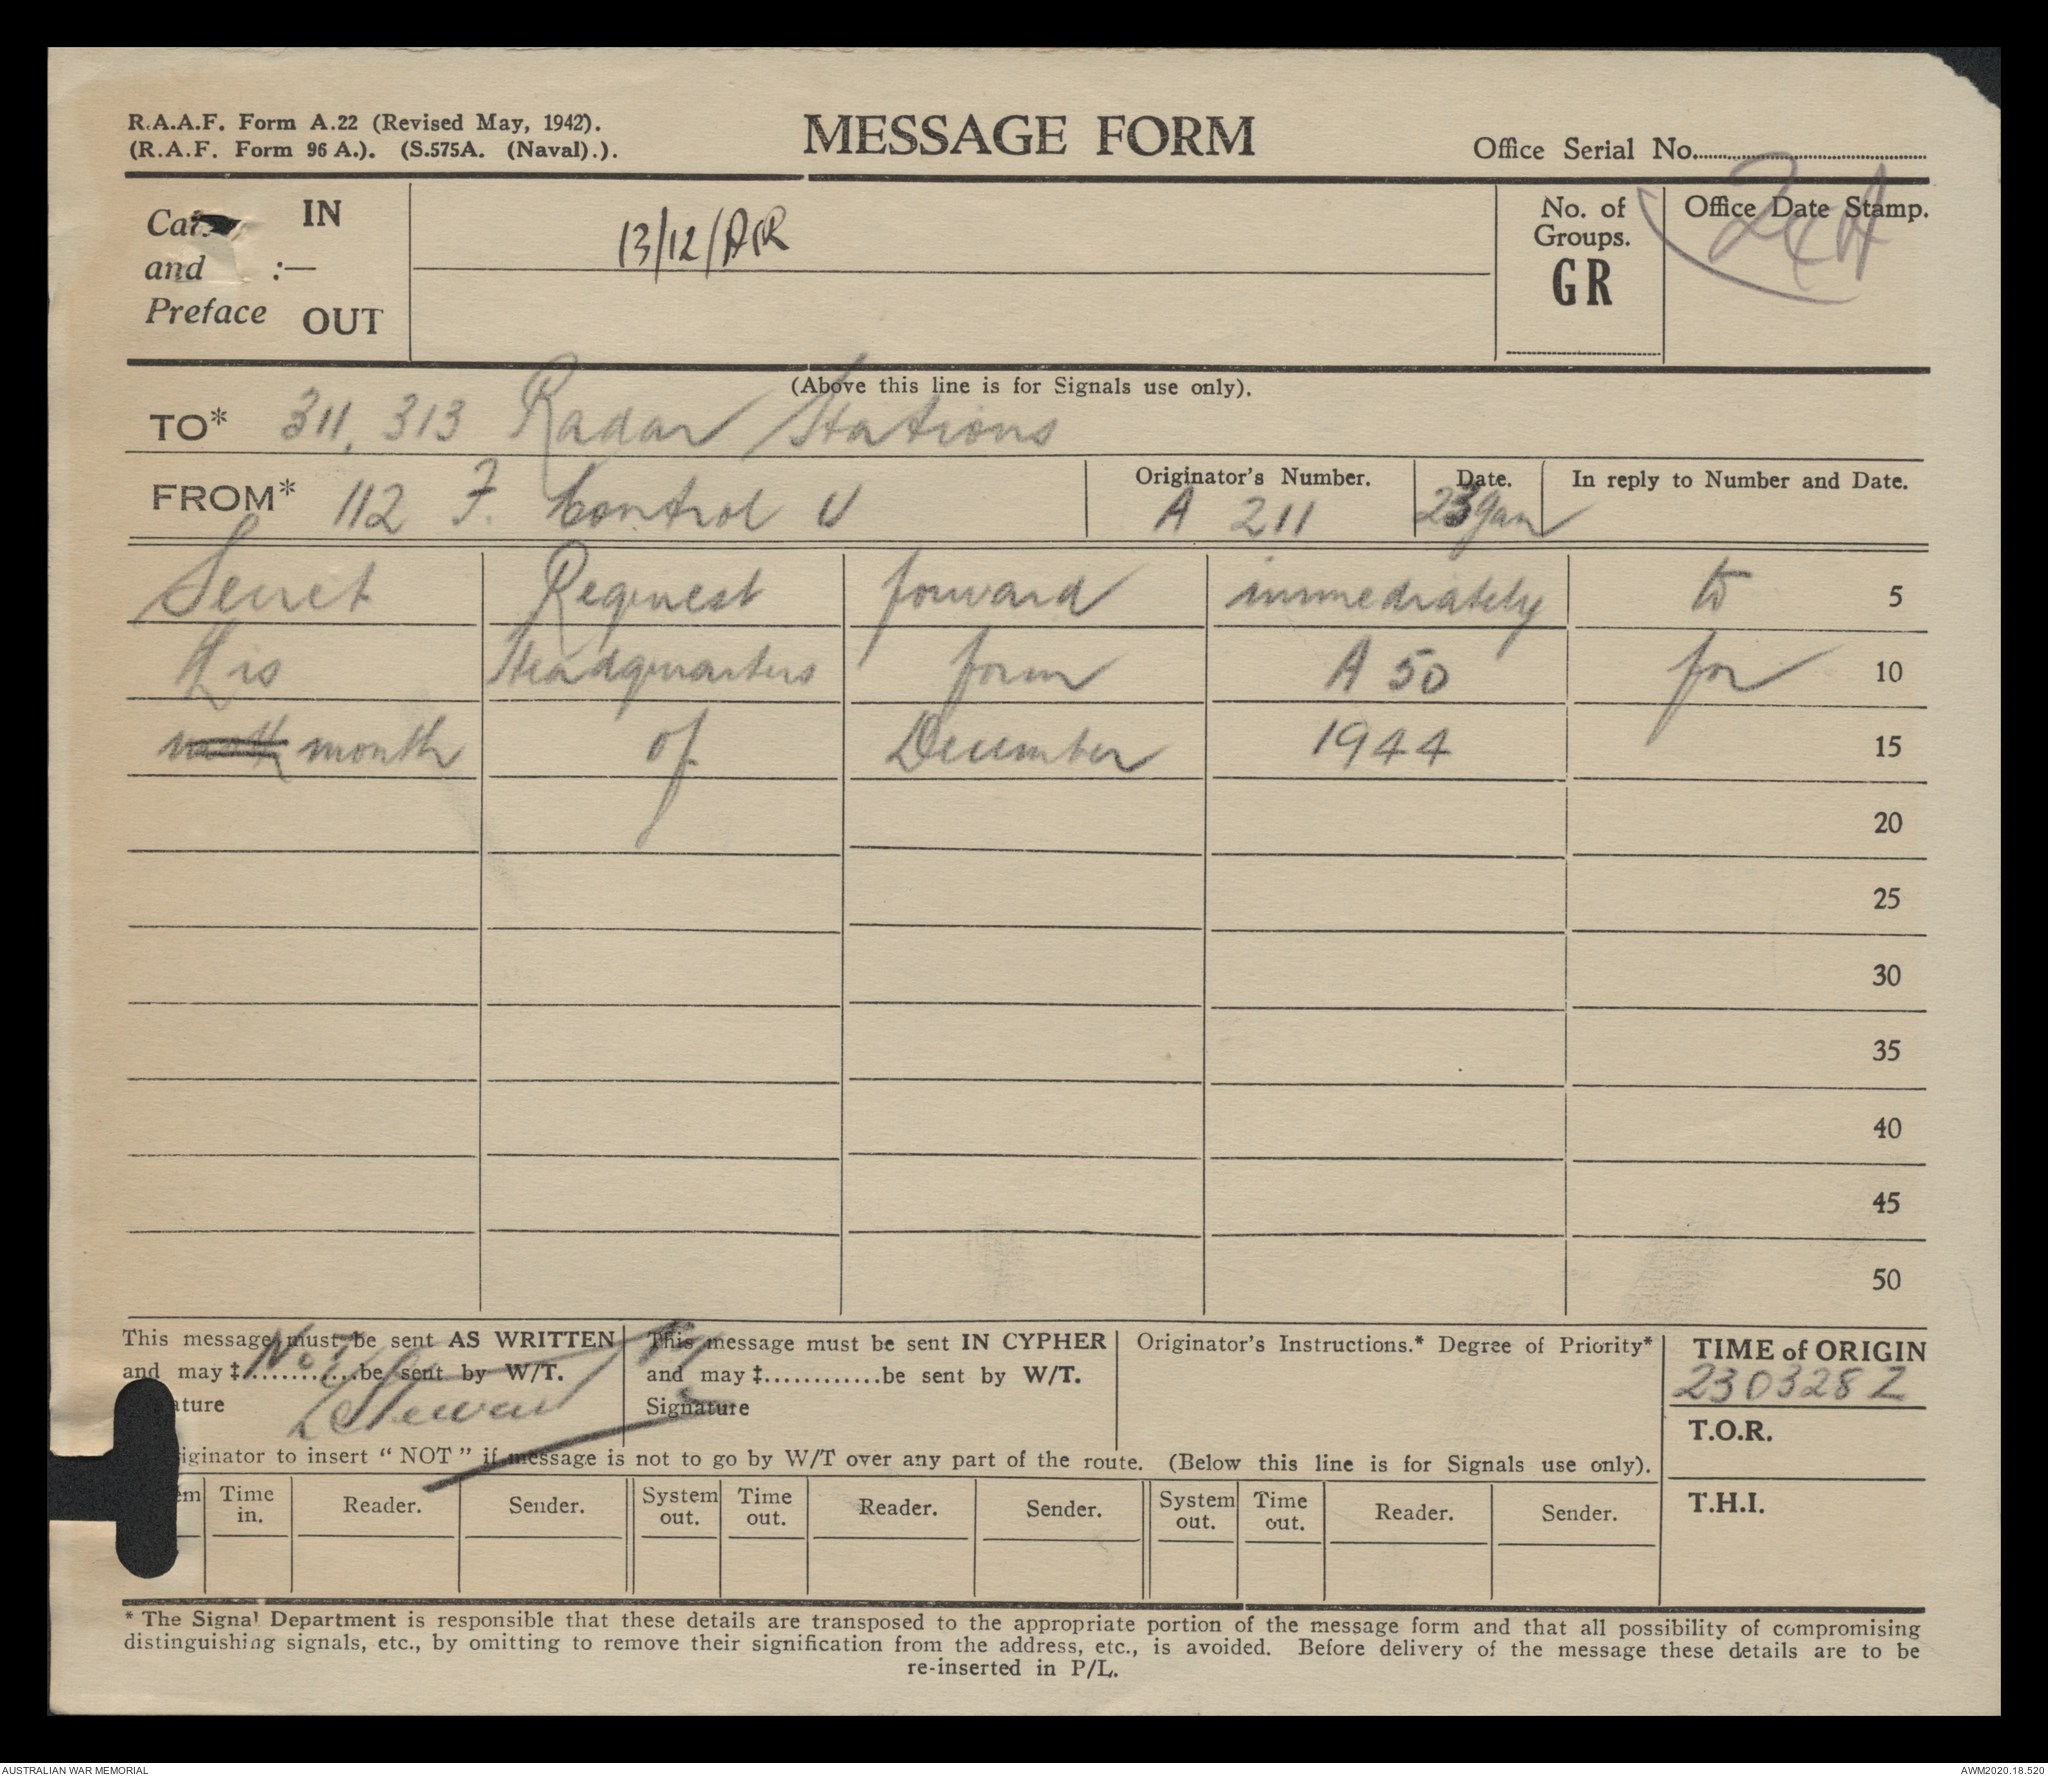 R.A.A.F. Form A.22 (Revised May, 1942).
(R.A.F. Form 96 A.). (S.575A. (Naval).).
MESSAGE FORM
Office Serial No.
IN
and :—
Preface OUT
13/12/AIR
No. of
Groups.
GR
Office Date Stamp.
(Above this line is for Signals use only).
TO* 311, 313 Radar Stations
FROM* 112 F. Control U
Originator's Number.
A 211
Date.
23 Jan
In reply to Number and Date.
Secret Request forward immediately to 5
this Headquarters form A 50 for 10
month of December 1944 15
20
25
30
35
40
45
50
This message must be sent AS WRITTEN
and may ‡ Not be sent by W/T.
Stewart
This message must be sent IN CYPHER
and may ‡............be sent by W/T.
Signature
Originator's Instructions.* Degree of Priority*
TIME of ORIGIN
230328Z
T.O.R.
T.H.I.
to insert "NOT" if message is not to go by W/T over any part of the route. (Below this line is for Signals use only).
Time in. Reader. Sender. System out. Time out. Reader. Sender. System out. Time out. Reader. Sender.
* The Signal Department is responsible that these details are transposed to the appropriate portion of the message form and that all possibility of compromising
distinguishing signals, etc., by omitting to remove their signification from the address, etc., is avoided. Before delivery of the message these details are to be
re-inserted in P/L.
AUSTRALIAN WAR MEMORIAL
AWM2020.18.520